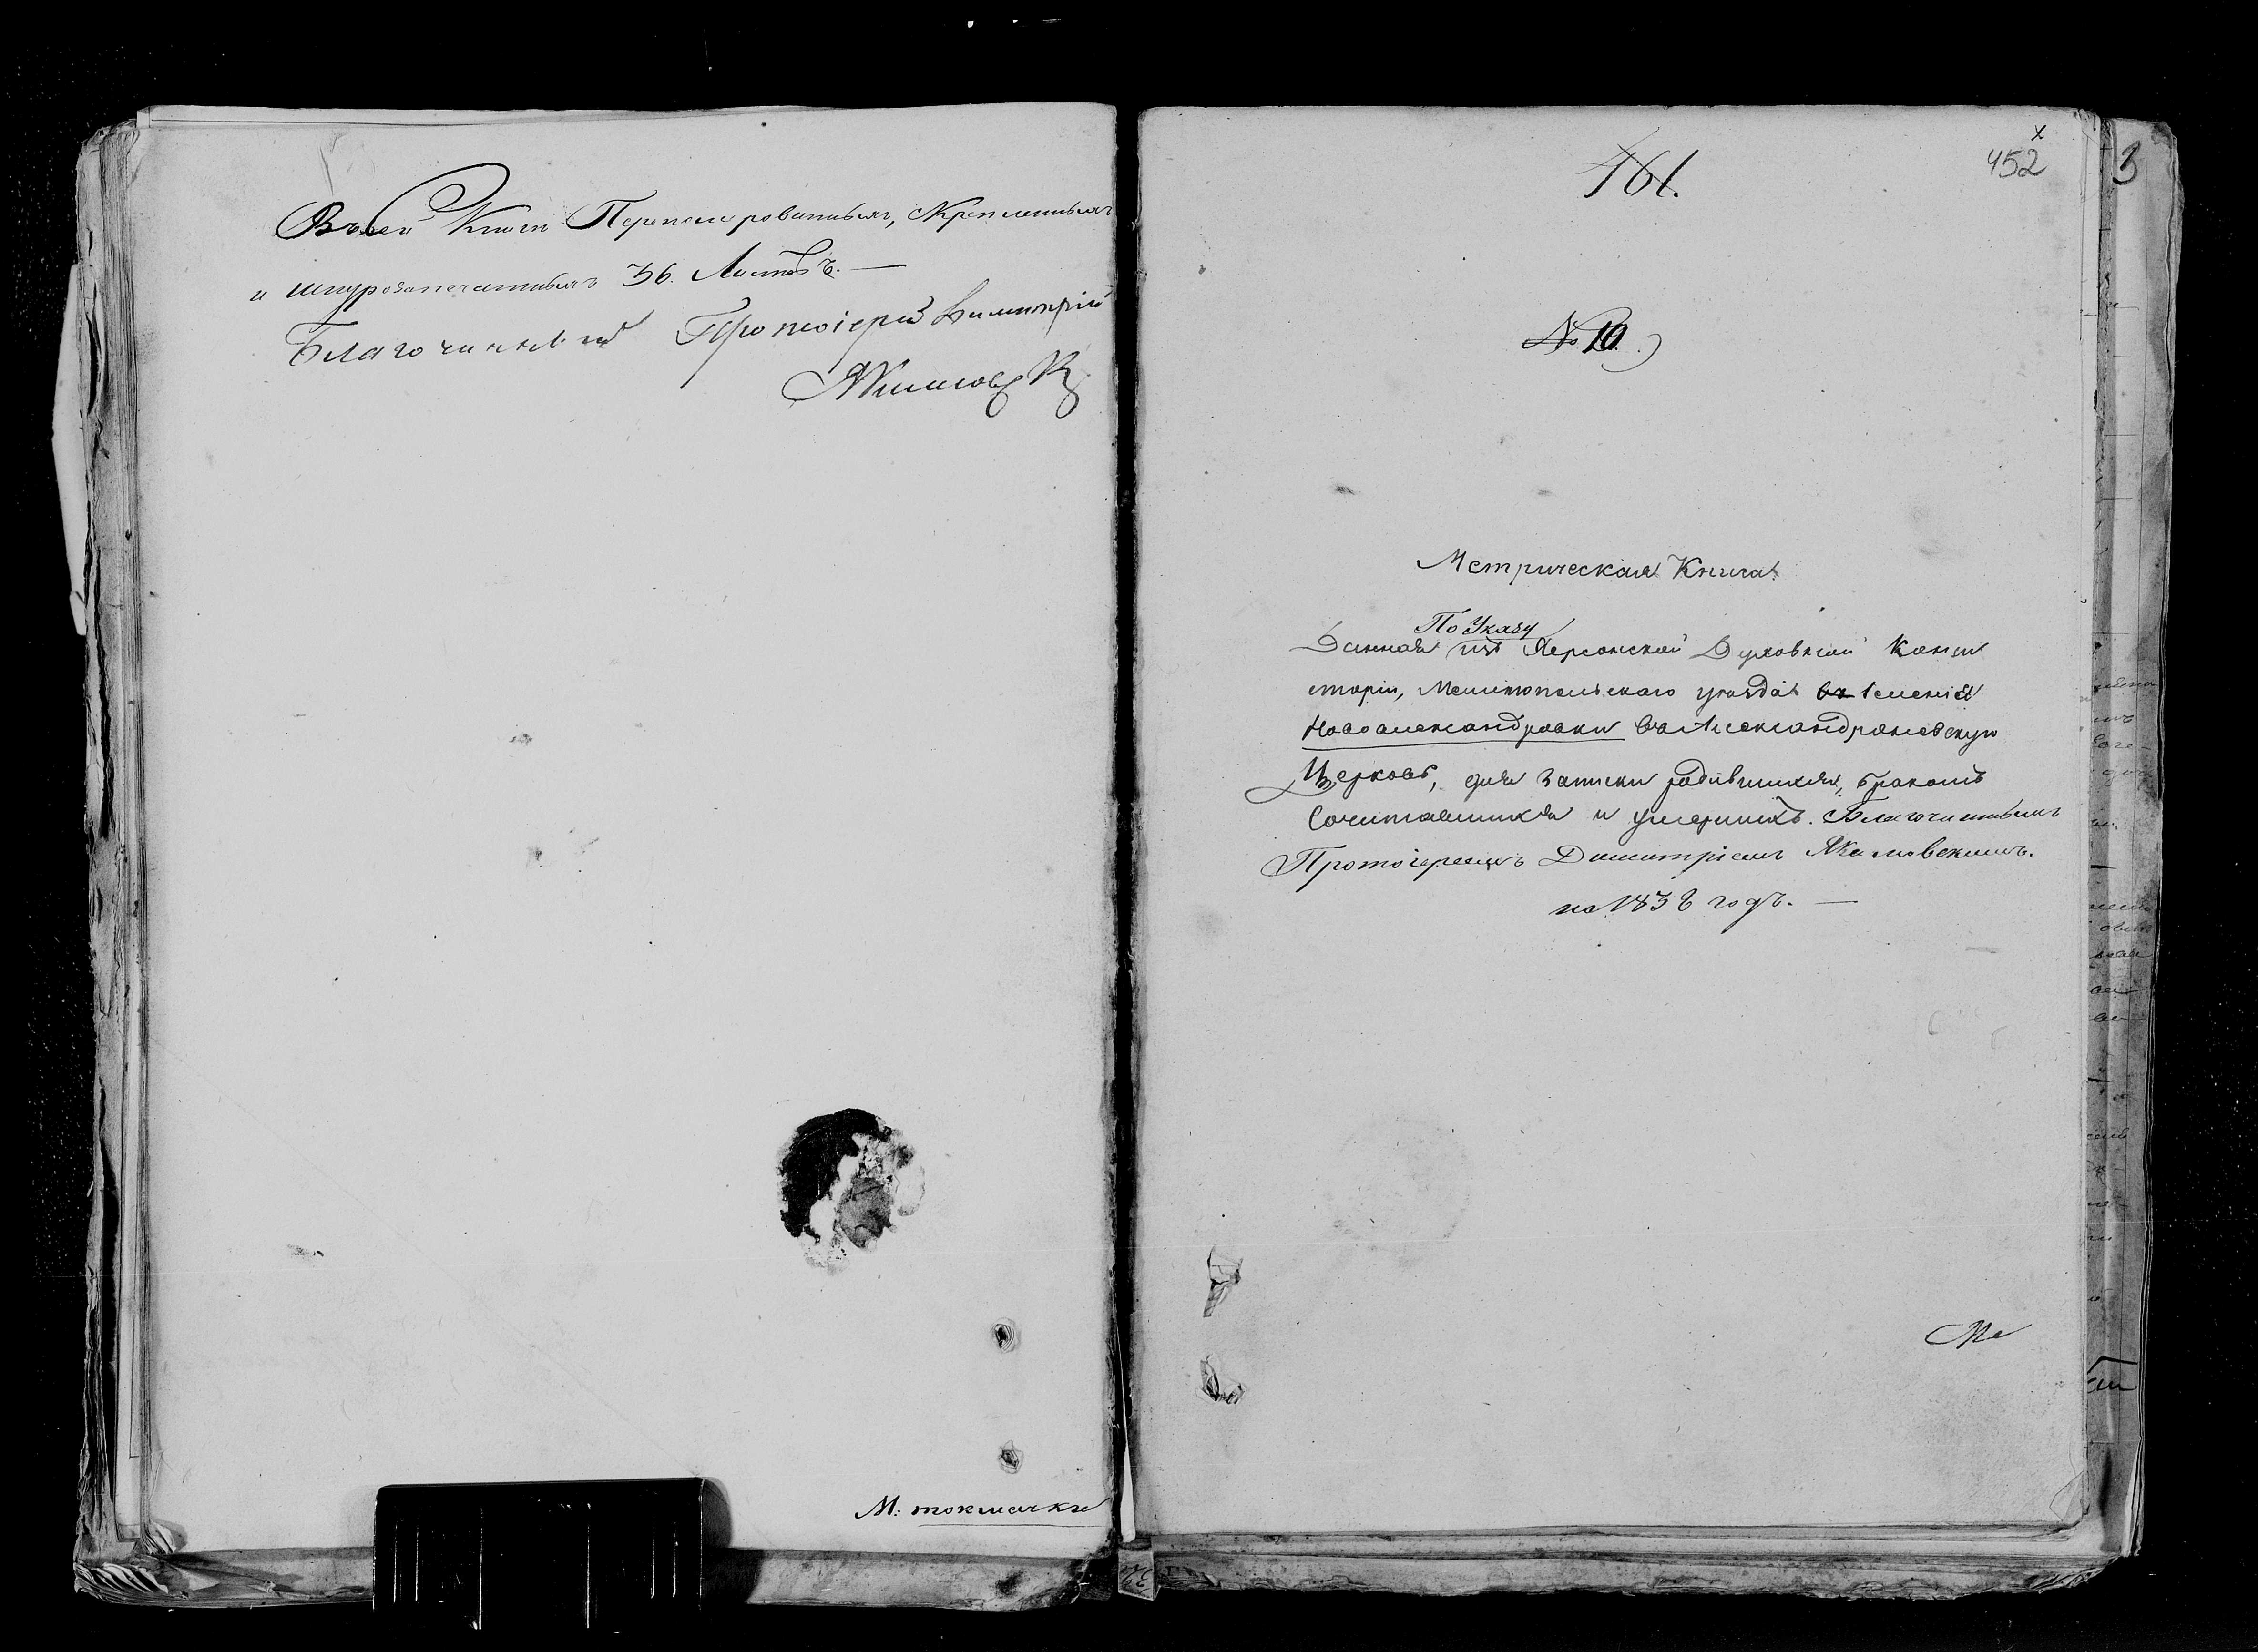 Въ сей Книги Переномерованныхъ, Скрепленныхъ
и шнурозапечатныхъ 36. Листовъ. —
Благочинный Протоіерей Димитрій
Якимовск
М: токмачки
161.
452
3
№ 10.
Метрическая Книга
По Указу
Данная изъ Херсонской Духовной Конси
сторіи, Мелитопольскаго уезда въ Селенія
Новоалександровки въ Александроневскую
Церковь, для записки родившихся, бракомъ
Сочитавшихся и умершихъ. Благочиннымъ
Протоіереемъ Димитріемъ Якимовскимъ.
на 1838 годъ. —
Ме